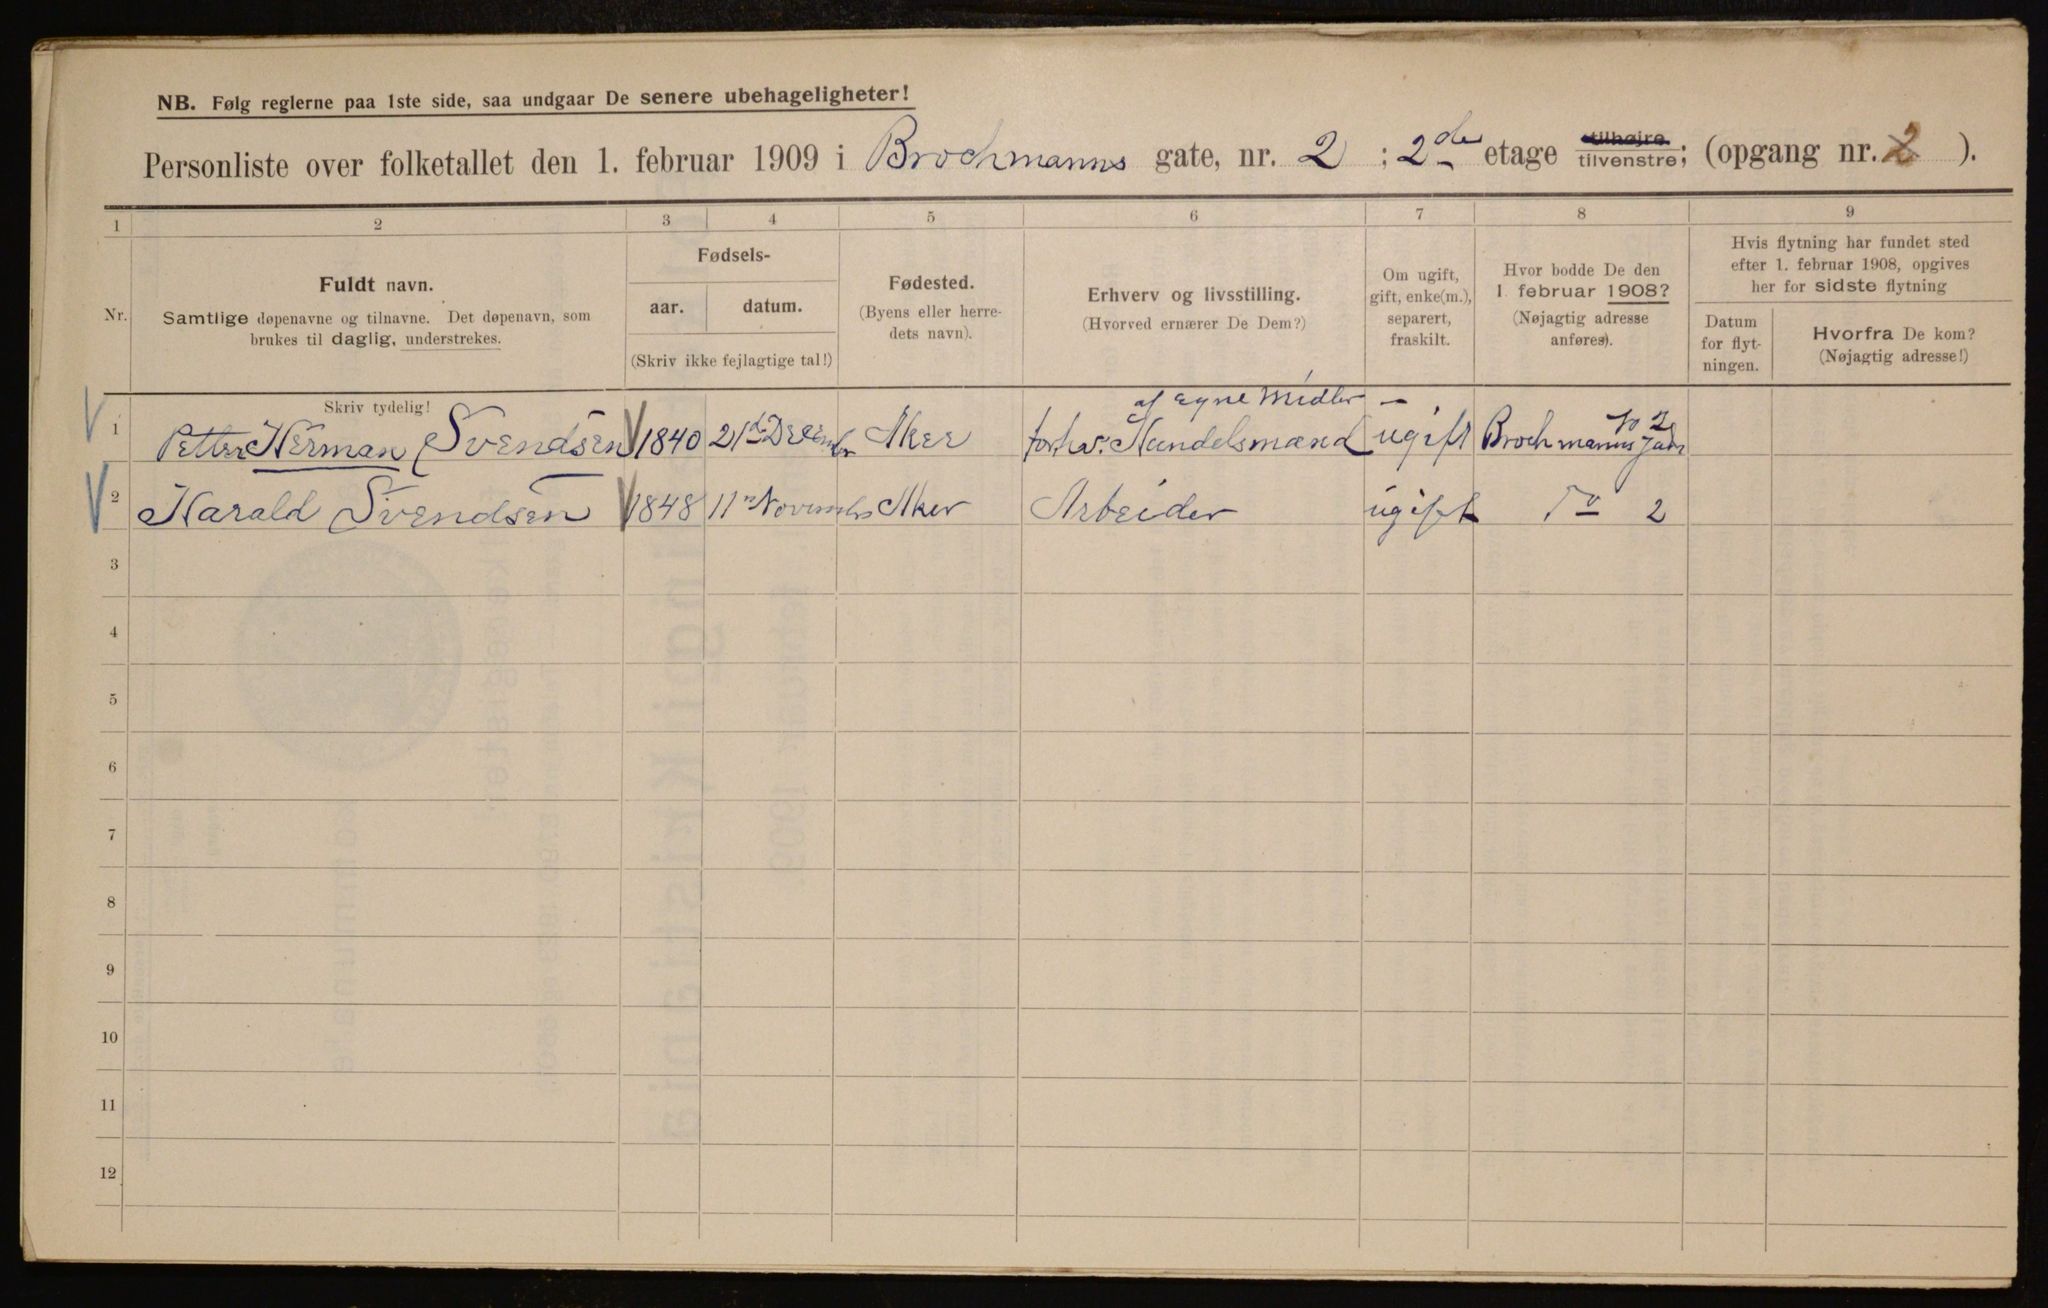 NB. Følg reglerne paa 1ste side, saa undgaar De senere ubehageligheter!
Personliste over folketallet den 1. februar 1909 i Brochmanns gate, nr. 2 ; 2de etage tilhøjre tilvenstre; (opgang nr. 2 ).
1 2 3 4 5 6 7 8 9
Nr.
Fuldt navn.
Samtlige døpenavne og tilnavne. Det døpenavn, som
brukes til daglig, understrekes.
Fødsels-
aar. datum.
(Skriv ikke fejlagtige tal!)
Fødested.
(Byens eller herre-
dets navn).
Erhverv og livsstilling.
(Hvorved ernærer De Dem?)
Om ugift,
gift, enke(m.),
separert,
fraskilt.
Hvor bodde De den
1. februar 1908?
(Nøjagtig adresse
anføres).
Hvis flytning har fundet sted
efter 1. februar 1908, opgives
her for sidste flytning
Datum
for flyt-
ningen.
Hvorfra De kom?
(Nøjagtig adresse!)
Skriv tydelig!
af Egne Midler –
1 Petter Herman Svendsen 1840 21de December Aker forhv. Handelsmand ugift Brochmanns Gade No 2
2 Harald Svendsen 1848 11te November Aker Arbeider ugift Do 2
3
4
5
6
7
8
9
10
11
12